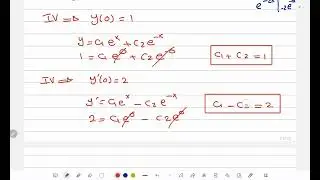 IV ⇒ y(0) = 1
y = c₁eˣ + c₂e⁻ˣ
1 = c₁e⁰ + c₂e⁻⁰
c₁ + c₂ = 1
IV ⇒ y'(0) = 2
y' = c₁eˣ - c₂e⁻ˣ
2 = c₁e⁰ - c₂e⁻⁰
c₁ - c₂ = 2